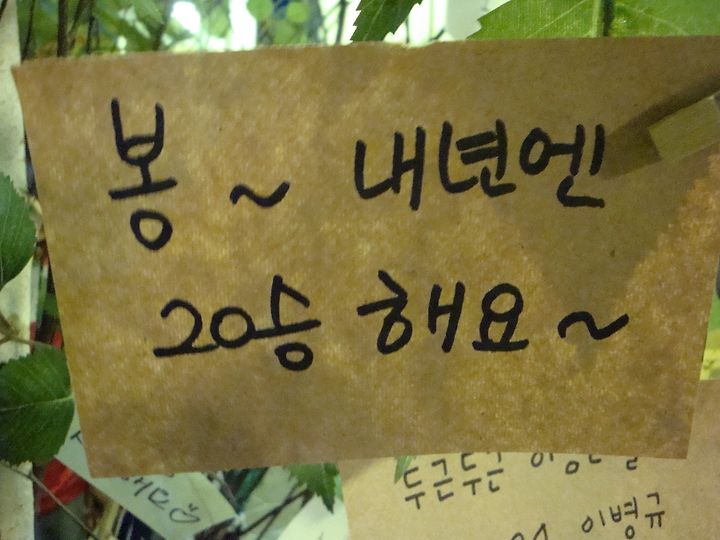 봉~ 내년엔
20승 해요~
두근두근
이병규